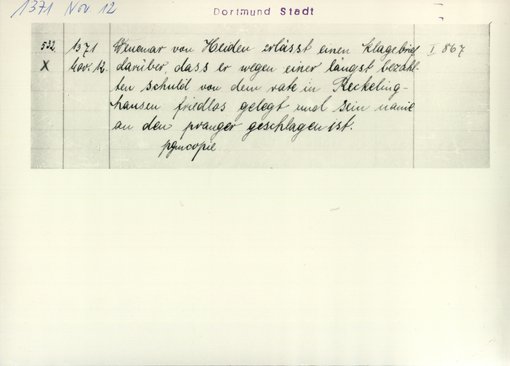 1371 Nov 12
Dortmund Stadt
522 1371 Wenemar von Heiden erlässt einen klagebrief I 867
X Nov. 12. darüber, dass er wegen einer längst bezahl-
ten schuld von dem rate in Reckeling-
hausen friedlos gelegt und sein name
an den pranger geschlagen ist.